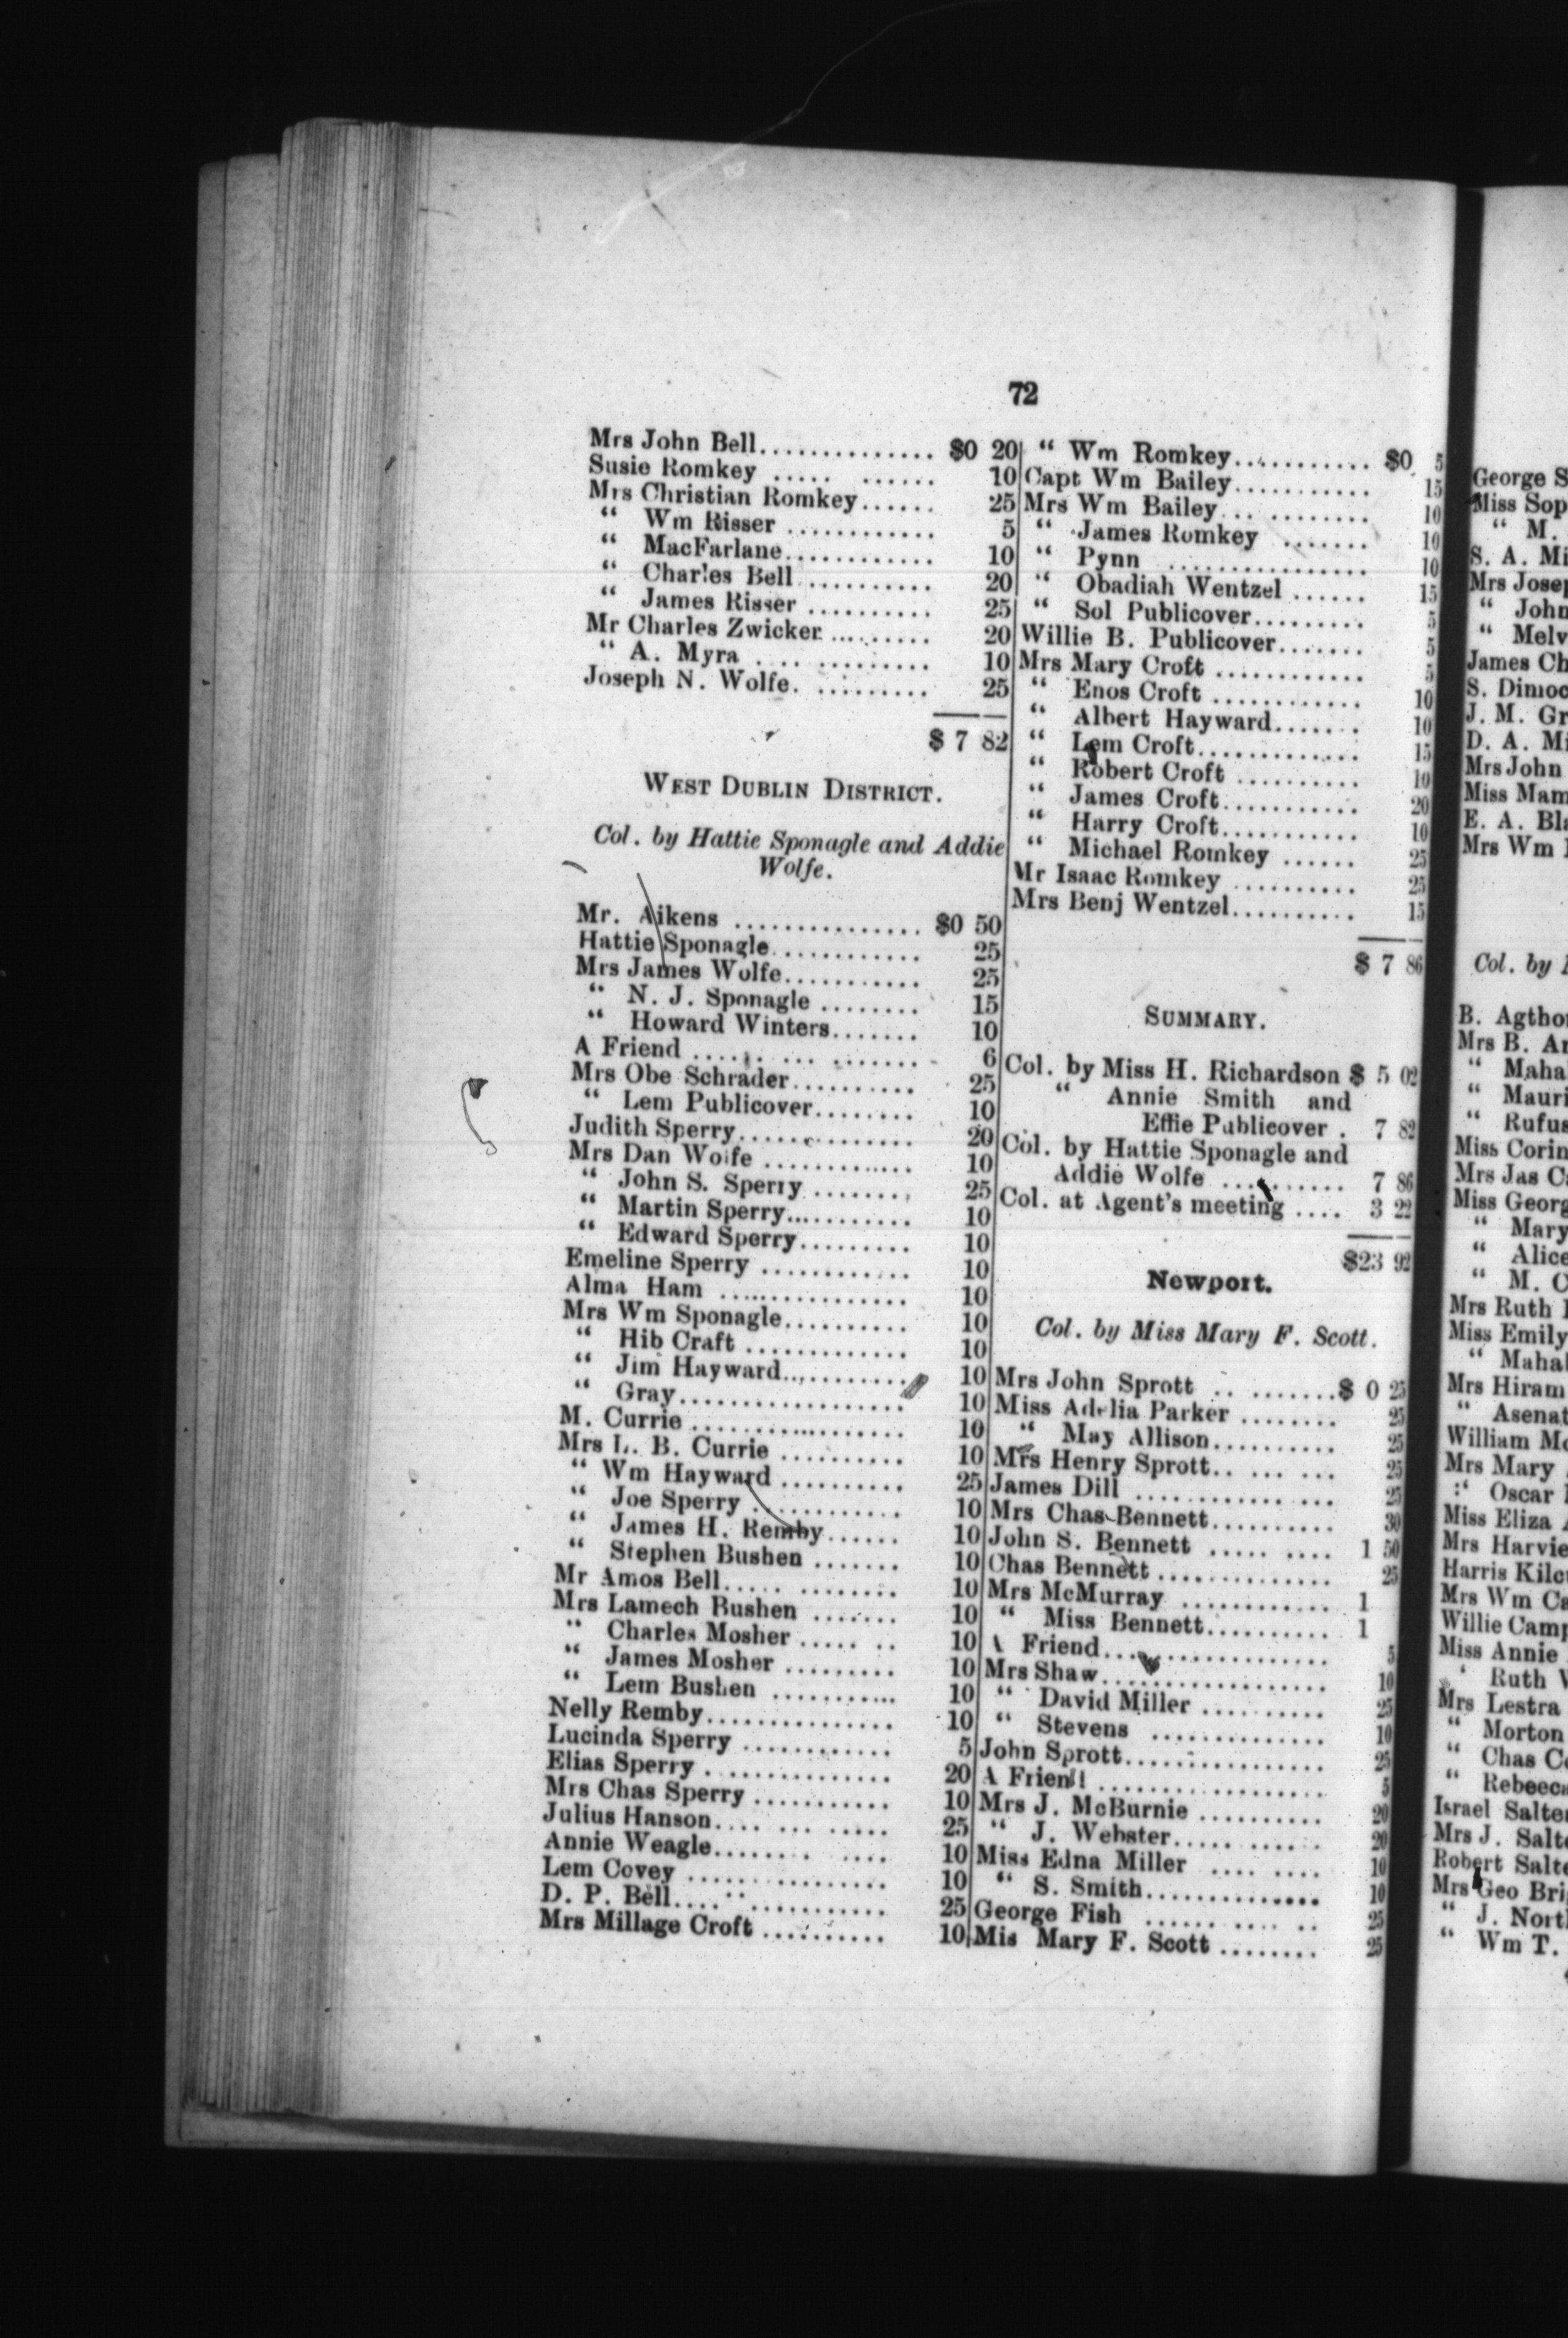 72
Mrs John Bell.............. $0 20
Susie Romkey ..... ...... 10
Mrs Christian Romkey...... 25
“ Wm Risser ............ 5
“ MacFarlane............ 10
“ Charles Bell .......... 20
“ James Risser .......... 25
Mr Charles Zwicker ......... 20
“ A. Myra .... ......... 10
Joseph N. Wolfe. ......... 25
$ 7 82
WEST DUBLIN DISTRICT.
Col. by Hattie Sponagle and Addie
Wolfe.
Mr. Aikens ............... $0 50
Hattie Sponagle............ 25
Mrs James Wolfe........... 25
“ N. J. Sponagle ........ 15
“ Howard Winters....... 10
A Friend ...... ... ....... 6
Mrs Obe Schrader.......... 25
“ Lem Publicover........ 10
Judith Sperry.............. 20
Mrs Dan Wolfe ............ 10
“ John S. Sperry ........ 25
“ Martin Sperry.......... 10
“ Edward Sperry......... 10
Emeline Sperry ............ 10
Alma Ham ............... 10
Mrs Wm Sponagle.......... 10
“ Hib Craft ............. 10
“ Jim Hayward.......... 10
“ Gray.................. 10
M. Currie ................. 10
Mrs L. B. Currie .......... 10
“ Wm Hayward .......... 25
“ Joe Sperry ............ 10
“ James H. Remby...... 10
“ Stephen Bushen ....... 10
Mr Amos Bell..... ........ 10
Mrs Lamech Bushen ....... 10
“ Charles Mosher ..... .. 10
“ James Mosher ......... 10
“ Lem Bushen ........... 10
Nelly Remby............... 10
Lucinda Sperry ............ 5
Elias Sperry . ............. 20
Mrs Chas Sperry ........... 10
Julius Hanson.... ... ..... 25
Annie Weagle........ .... 10
Lem Covey ................ 10
D. P. Bell.... ............ 25
Mrs Millage Croft .......... 10
“ Wm Romkey........... $0 5
Capt Wm Bailey........... 15
Mrs Wm Bailey... ........ 10
“ James Romkey ....... 10
“ Pynn ................ 10
“ Obadiah Wentzel ...... 15
“ Sol Publicover......... 5
Willie B. Publicover....... 5
Mrs Mary Croft ............ 5
“ Enos Croft ............ 10
“ Albert Hayward....... 10
“ Lem Croft............. 15
“ Robert Croft .......... 10
“ James Croft........... 20
“ Harry Croft........... 10
“ Michael Romkey ...... 25
Mr Isaac Romkey .......... 25
Mrs Benj Wentzel.......... 15
$ 7 86
SUMMARY.
Col. by Miss H. Richardson $ 5 02
“ Annie Smith and
Effie Publicover . 7 82
Col. by Hattie Sponagle and
Addie Wolfe .......... 7 86
Col. at Agent's meeting .... 3 22
$23 92
Newport.
Col. by Miss Mary F. Scott.
Mrs John Sprott .. .......$ 0 25
Miss Adelia Parker ........ 25
“ May Allison.......... 25
Mrs Henry Sprott.. ... ... 25
James Dill ............ ... 25
Mrs Chas Bennett.......... 30
John S. Bennett ..... .... 1 50
Chas Bennett .............. 25
Mrs McMurray ............ 1
“ Miss Bennett.......... 1
A Friend.................. 5
Mrs Shaw.................. 10
“ David Miller .......... 25
“ Stevens .............. 10
John Sprott................ 25
A Friend .................. 5
Mrs J. McBurnie .......... 20
“ J. Webster..... ..... . 20
Miss Edna Miller .... .... 10
“ S. Smith.............. 10
George Fish ...... .... .. 25
Mis Mary F. Scott ........ 25
George S
Miss Sop
“ M.
S. A. Mi
Mrs Josep
“ John
“ Melv
James Ch
S. Dimoc
J. M. Gr
D. A. Mi
Mrs John
Miss Mam
E. A. Bla
Mrs Wm
Col. by
B. Agthor
Mrs B. Ar
“ Maha
“ Mauri
“ Rufus
Miss Corin
Mrs Jas C
Miss Georg
“ Mary
“ Alice
“ M. C
Mrs Ruth
Miss Emily
“ Mahal
Mrs Hiram
“ Asenat
William Mc
Mrs Mary
“ Oscar
Miss Eliza
Mrs Harvie
Harris Kilc
Mrs Wm Ca
Willie Camp
Miss Annie
“ Ruth
Mrs Lestra
“ Morton
“ Chas Co
“ Rebecca
Israel Salter
Mrs J. Salte
Robert Salte
Mrs Geo Bri
“ J. Nort
“ Wm T.